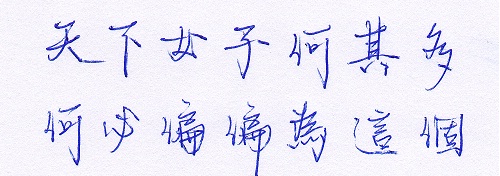 天下女子何其多
何必偏偏為這個